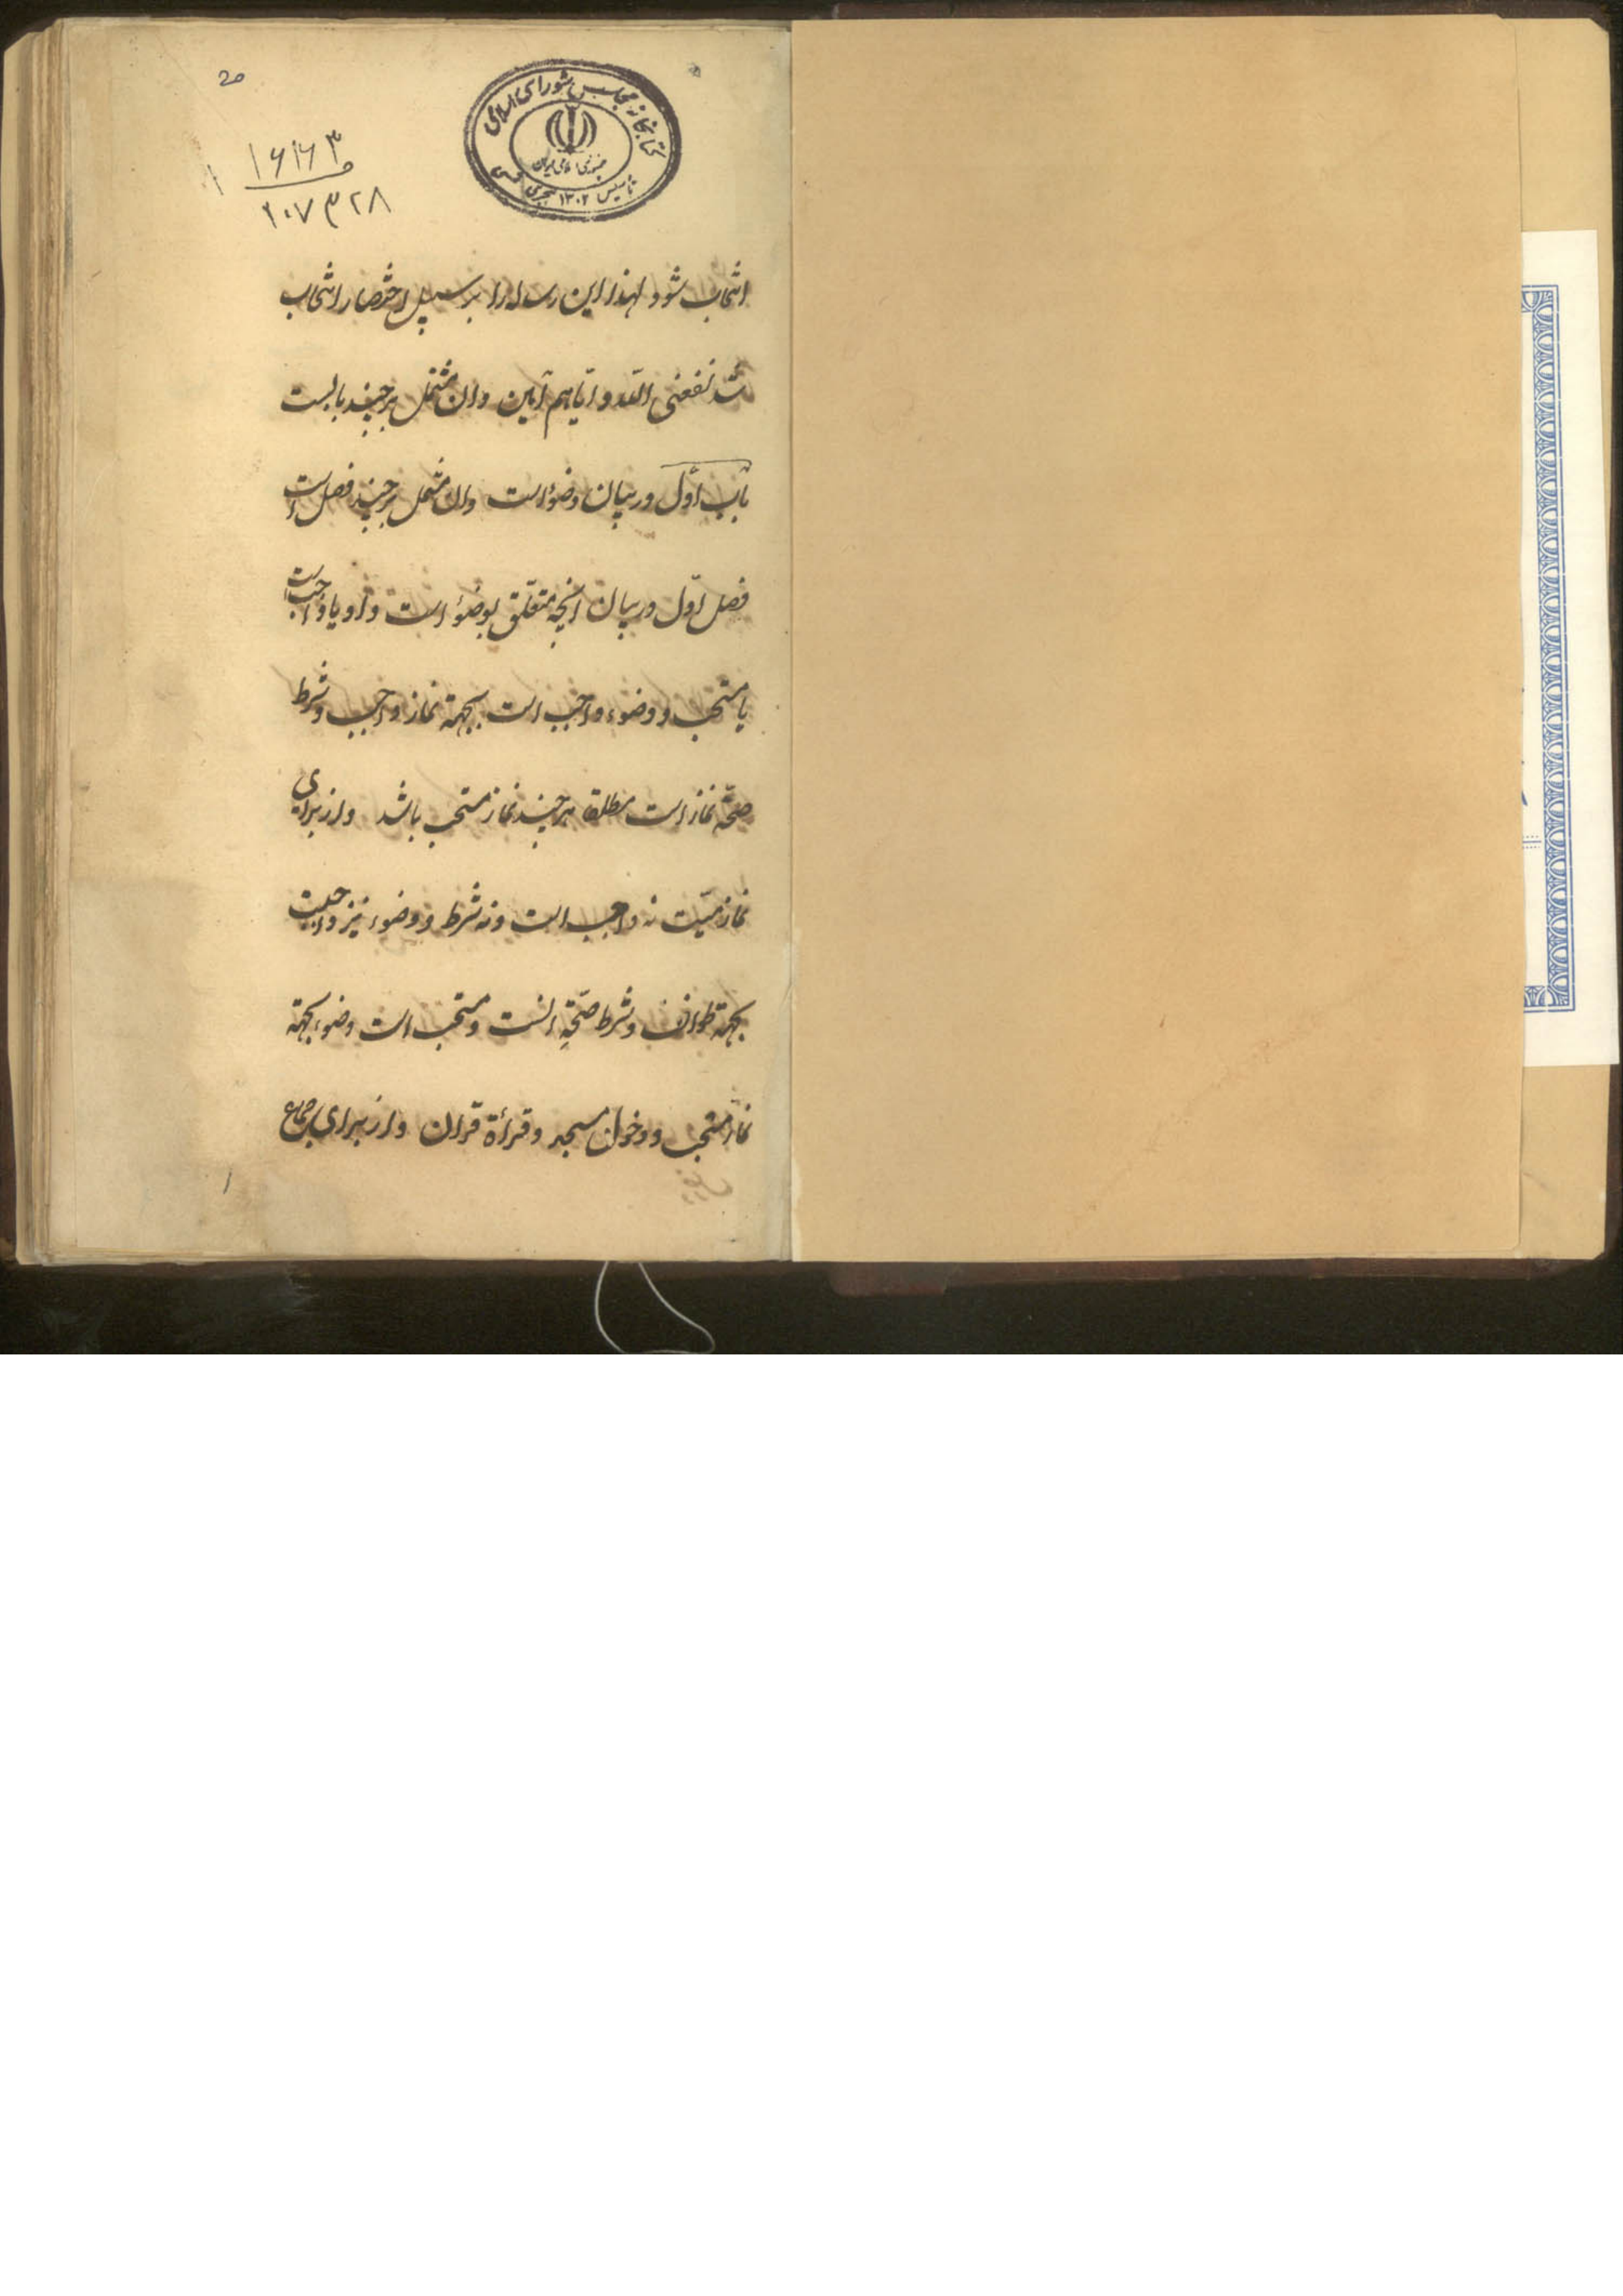 20
۱۶۱۶۳
۲۰۷۳۲۸
کتابخانه مجلس شورای اسلامی
جمهوری اسلامی ایران
تاسیس ۱۳۰۲ هجری شمسی
انتخاب شود لهذا این رساله را بر سبیل اختصار انتخاب
شد نفعنی الله و ایاهم آمین وان مشتمل بر چند بابست
باب اول در بیان وضوء است وان مشتمل بر چند فصل است
فصل اول در بیان انچه متعلق بوضوء است واو یا واجب است
یا مستحب ووضوء واجب است بجهة نماز واجب وشرط
صحّة نماز است مطلقا هر چند نماز مستحب باشد واز برای
نماز میّت نه واجب است ونه شرط ووضوء نیز واجبست
بجهة طواف وشرط صحّة انست ومستحب است وضوء بجهة
نماز مستحب ودخول مسجد وقراءة قران واز برای جماع